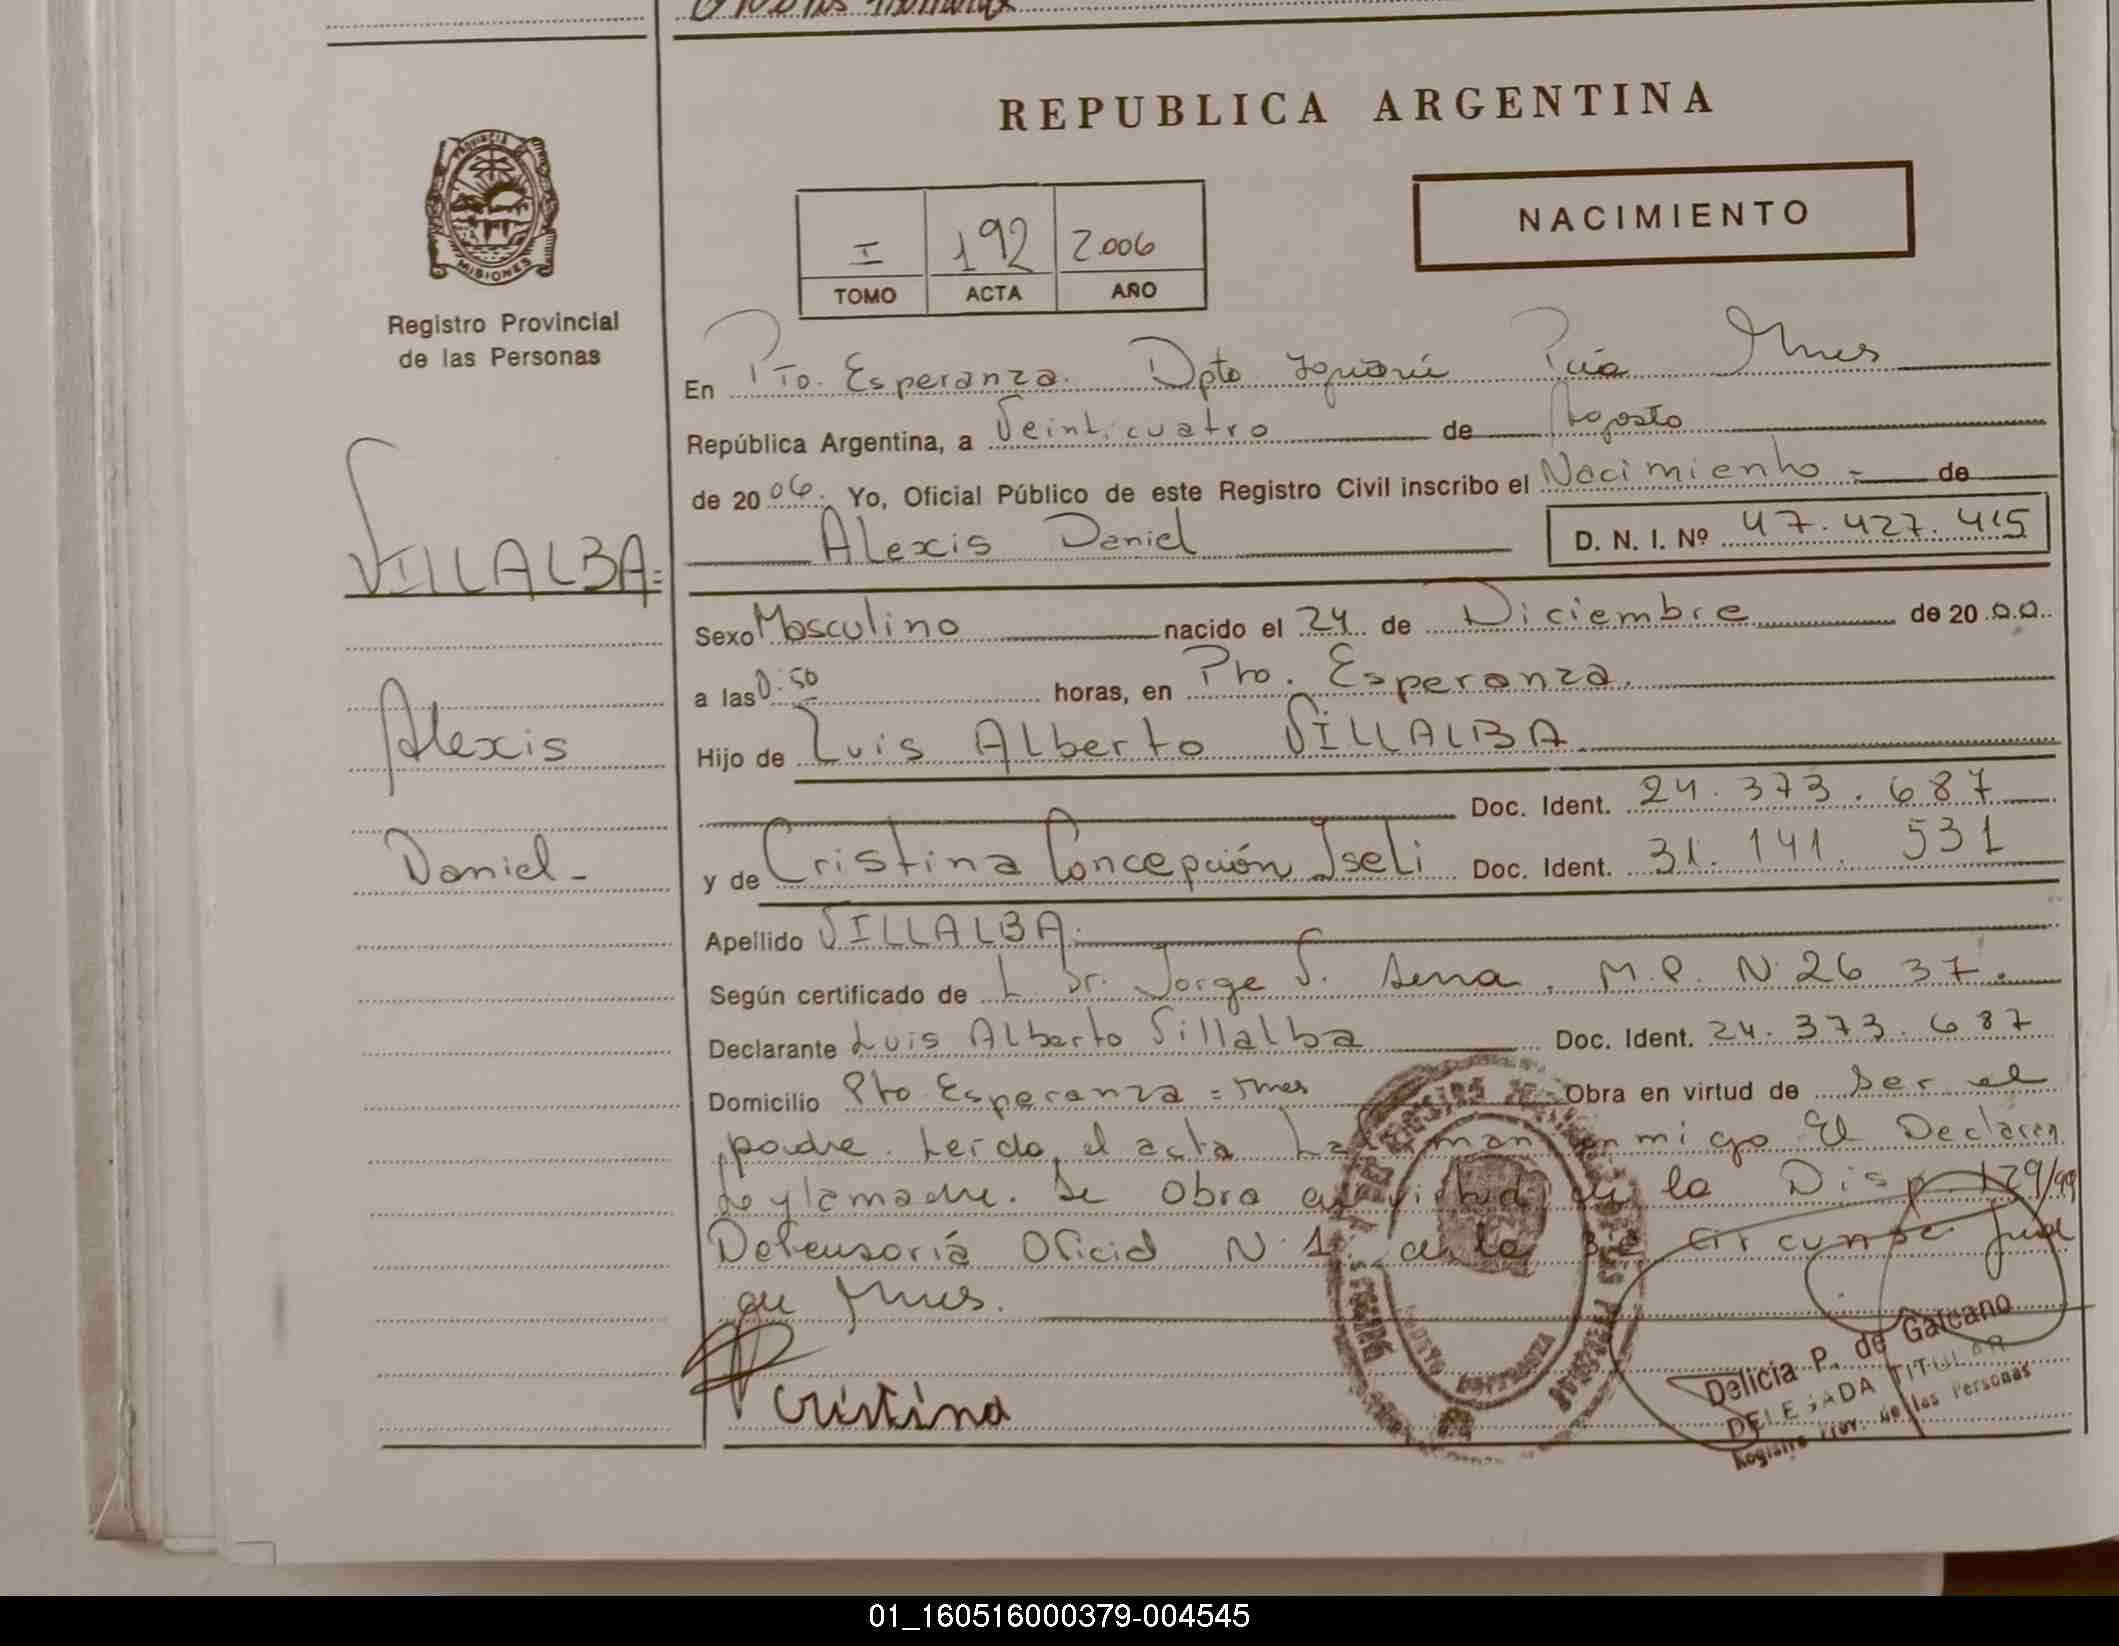 REPUBLICA ARGENTINA
NACIMIENTO
I 192 2.006
TOMO ACTA AÑO
PROVINCIA
MISIONES
Registro Provincial
de las Personas
VILLALBA=
Alexis
Daniel-
En Pto. Esperanza. Dpto Iguazú Pcia Mnes
República Argentina, a Veinticuatro de Agosto
de 2006. Yo, Oficial Público de este Registro Civil inscribo el Nacimiento = de
Alexis Daniel D. N. I. Nº 47.427.415
Sexo Masculino nacido el 24 de Diciembre de 20 00
a las 0:50 horas, en Pto. Esperanza.
Hijo de Luis Alberto VILLALBA
Doc. Ident. 24.373.687
y de Cristina Concepción Iseli Doc. Ident. 31.141.531
Apellido VILLALBA.
Según certificado de L Dr. Jorge V. M.P. N 26 37.
Declarante Luis Alberto Villalba Doc. Ident. 24.373.687
Domicilio Pto Esperanza = Mnes Obra en virtud de Ser el
padre. Leida el acta La man conmigo El Declaran
te y la madre. Se Obra en virtud de la Disp 129/99
Defensoría Oficial N 1. de la 3ª Circunsc Jud
de Mnes.
Cristina
Delicia P. de Galeano
DELEGADA TITULAR
Registro Prov. de las Personas
01_160516000379-004545